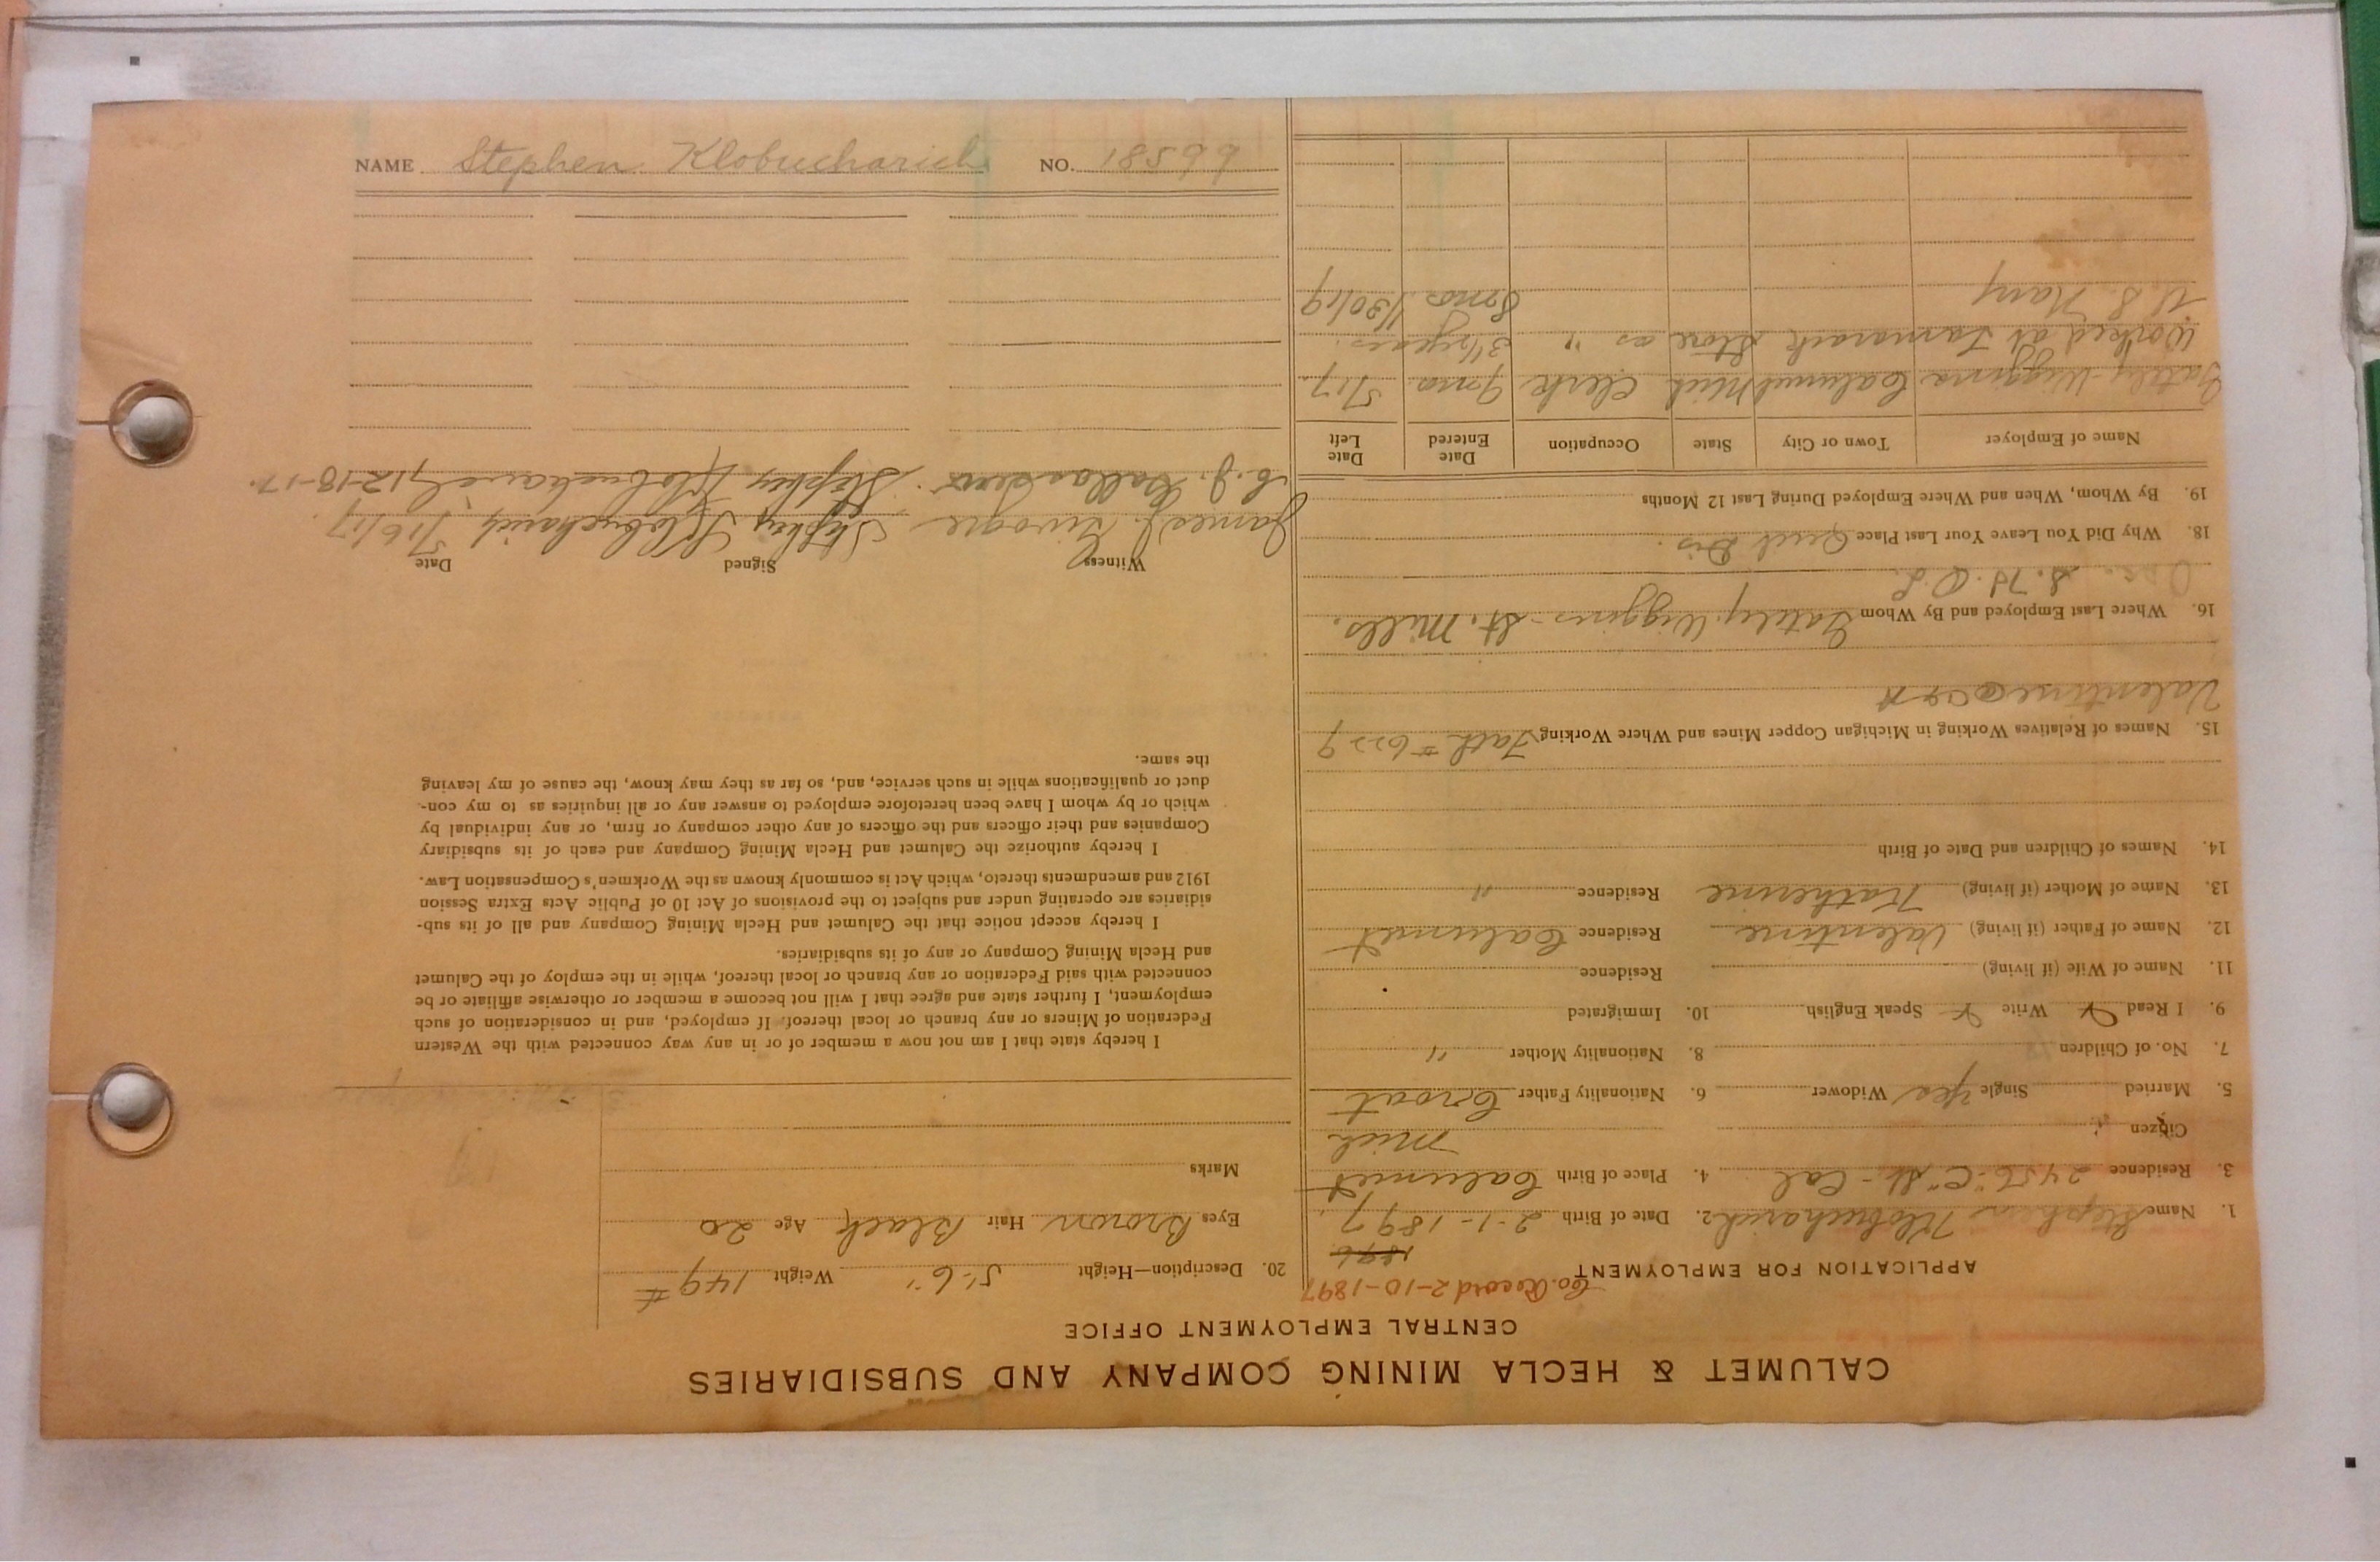 CALUMET & HECLA MINING COMPANY AND SUBSIDIARIES
CENTRAL EMPLOYMENT OFFICE
Co. Record 2-10-1897
APPLICATION FOR EMPLOYMENT
1896
1. Name Stephen Klobucharich 2. Date of Birth 2-1-1897
3. Residence 2456 "C" St - Cal 4. Place of Birth Calumet
Citizen Mich
5. Married Single Yes Widower 6. Nationality Father Croat
7. No. of Children 8. Nationality Mother "
9. I Read Y Write Y Speak English 10. Immigrated
11. Name of Wife (if living) Residence
12. Name of Father (if living) Valentine Residence Calumet
13. Name of Mother (if living) Katherine Residence "
14. Names of Children and Date of Birth
15. Names of Relatives Working in Michigan Copper Mines and Where Working Fath #6229
Valentine
16. Where Last Employed and By Whom Gately-Wiggins - St. Mills.
18. Why Did You Leave Your Last Place Quit Dis.
19. By Whom, When and Where Employed During Last 12 Months
Name of Employer Town or City State Occupation Date Entered Date Left
Gately-Wiggins Calumet Mich Clerk 9 mo 5/17
Worked at Tamarack Store as " 3 1/2 years.
U. S. Navy 8 mos 1/30/19
20. Description—Height 5'-6" Weight 149 #
Eyes Brown Hair Black Age 20
Marks
I hereby state that I am not now a member of or in any way connected with the Western
Federation of Miners or any branch or local thereof. If employed, and in consideration of such
employment, I further state and agree that I will not become a member or otherwise affiliate or be
connected with said Federation or any branch or local thereof, while in the employ of the Calumet
and Hecla Mining Company or any of its subsidiaries.
I hereby accept notice that the Calumet and Hecla Mining Company and all of its sub-
sidiaries are operating under and subject to the provisions of Act 10 of Public Acts Extra Session
1912 and amendments thereto, which Act is commonly known as the Workmen's Compensation Law.
I hereby authorize the Calumet and Hecla Mining Company and each of its subsidiary
Companies and their officers and the officers of any other company or firm, or any individual by
which or by whom I have been heretofore employed to answer any or all inquiries as to my con-
duct or qualifications while in such service, and, so far as they may know, the cause of my leaving
the same.
Witness Signed Date
James J. Stephen Klobucharich 5/16/17
C. J. Stephen Klobucharich 12-18-17.
NAME Stephen Klobucharich NO. 18566